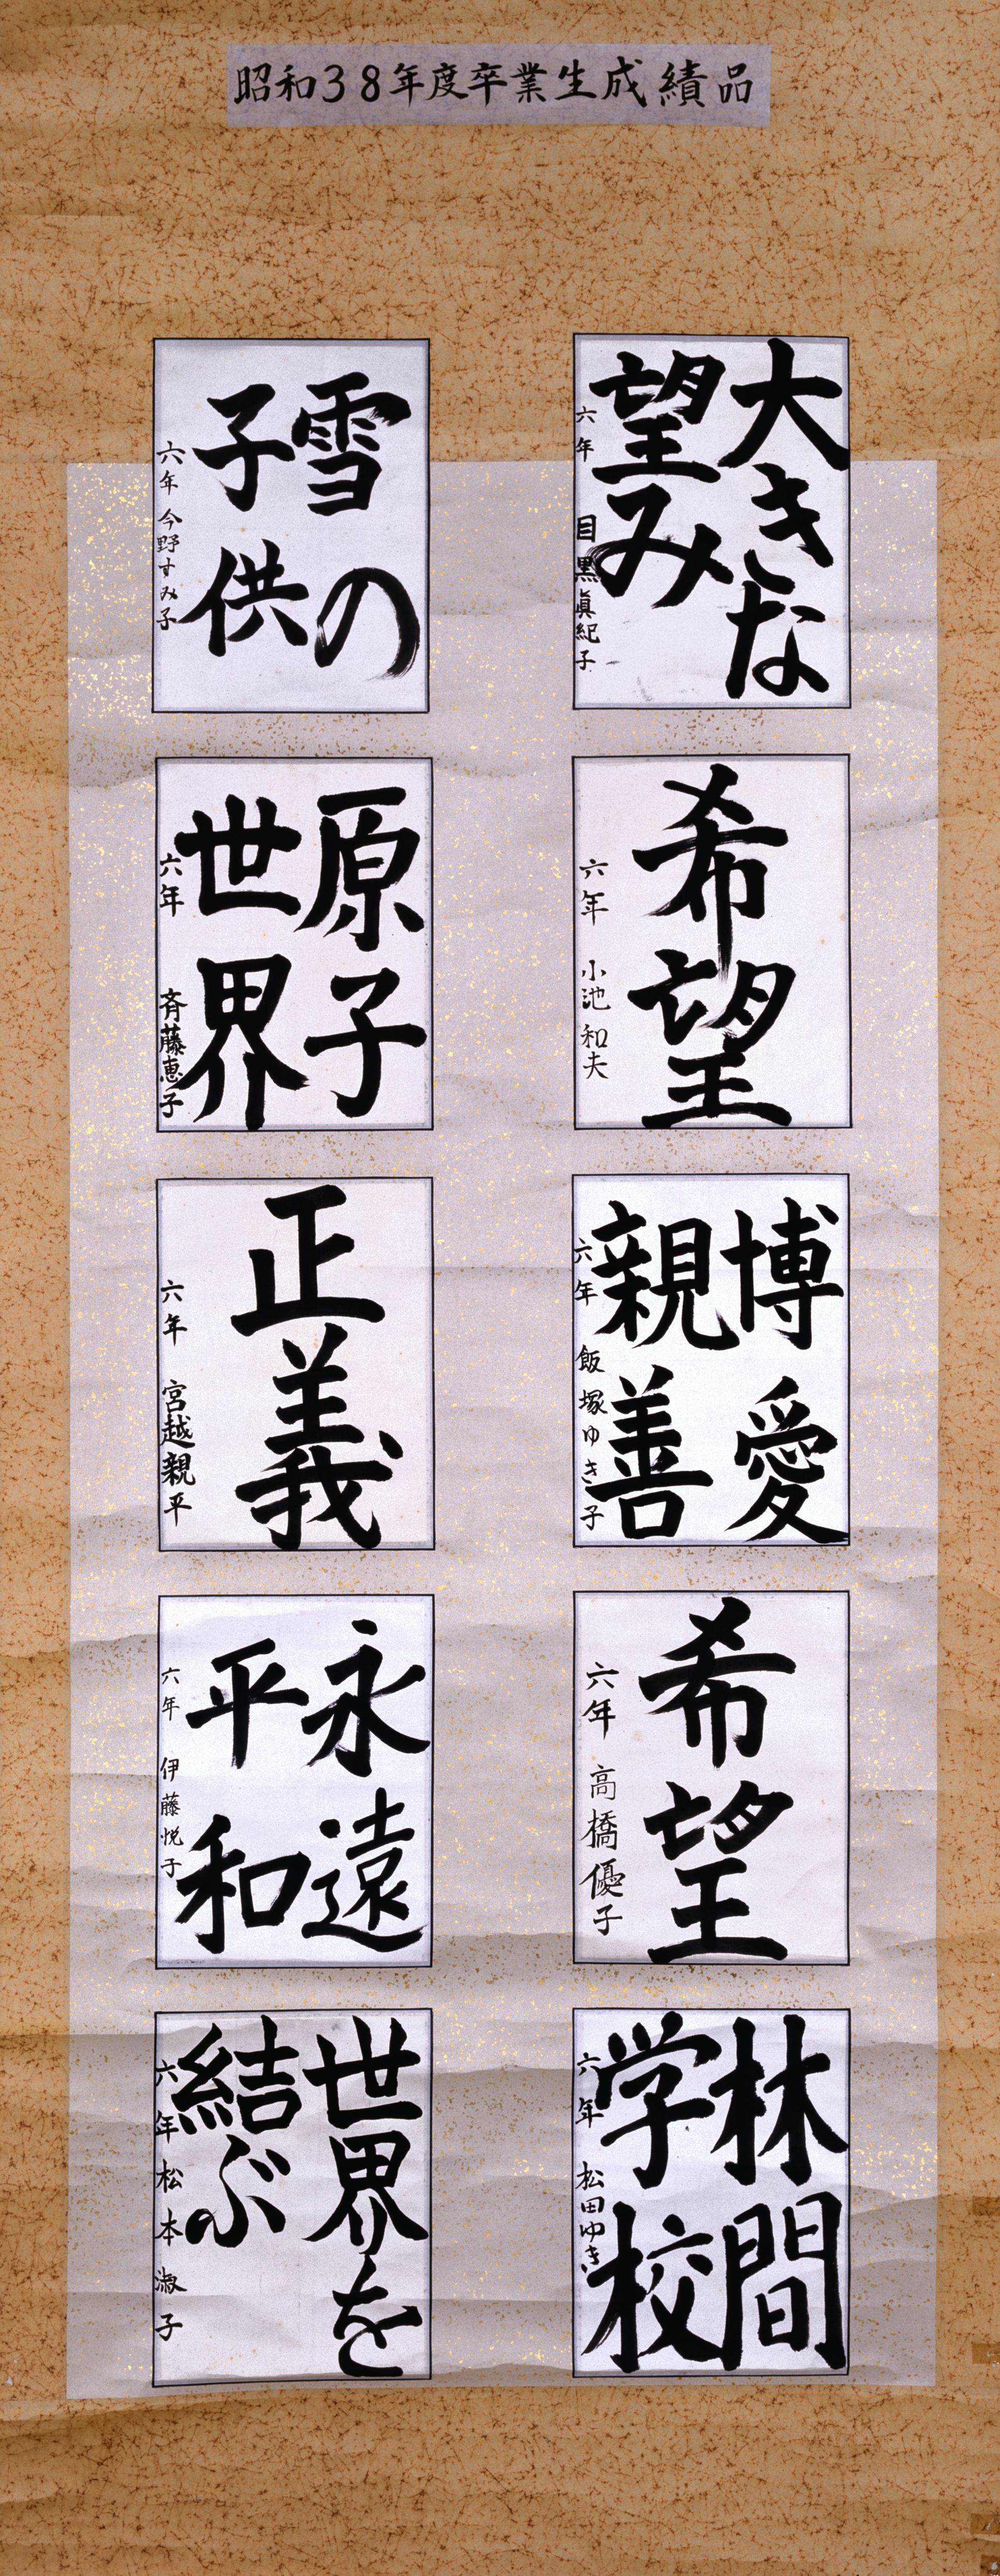 昭和38年度卒業生成績品
大きな
望み
六年 目黒眞紀子
希望
六年 小池和夫
博愛
親善
六年 飯塚ゆき子
希望
六年 高橋優子
林間
学校
六年 松田ゆき
雪の
子供
六年 今野すみ子
原子
世界
六年 斉藤恵子
正義
六年 宮越親平
永遠
平和
六年 伊藤悦子
世界を
結ぶ
六年 松本淑子